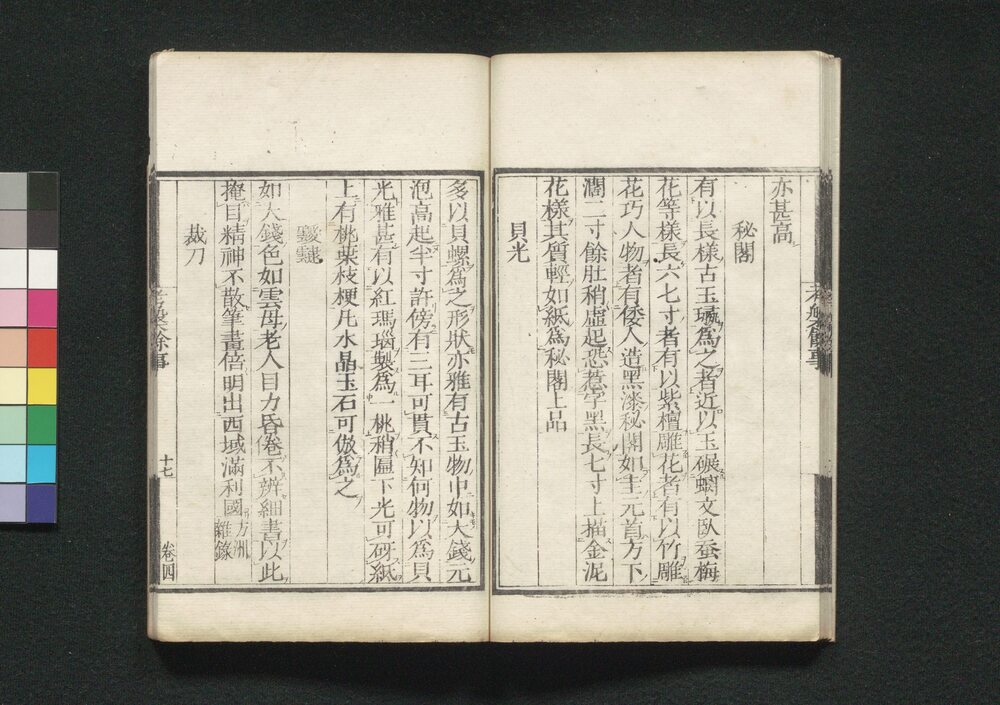 亦甚高
秘閣
有以長樣古玉璏爲之者近以玉碾螭文臥蚕梅
花等樣長六七寸者有以紫檀雕花者有以竹雕
花巧人物者有倭人造黑漆秘閣如圭元首方下
濶二寸餘肚稍虛起恐惹字黑長七寸上描金泥
花樣其質輕如紙爲秘閣上品
貝光
多以貝螺爲之形狀亦雅有古玉物中如大錢元
泡高起半寸許傍有三耳可貫不知何物以爲貝
光雅甚有以紅瑪瑙製爲一桃稍匾下光可砑紙
上有桃葉枝梗凡水晶玉石可倣爲之
靉靆
如大錢色如雲母老人目力昏倦不辨細書以此
掩目精神不散筆畫倍明出西域滿利國方洲
雜錄
裁刀
考槃餘事
十七
卷四